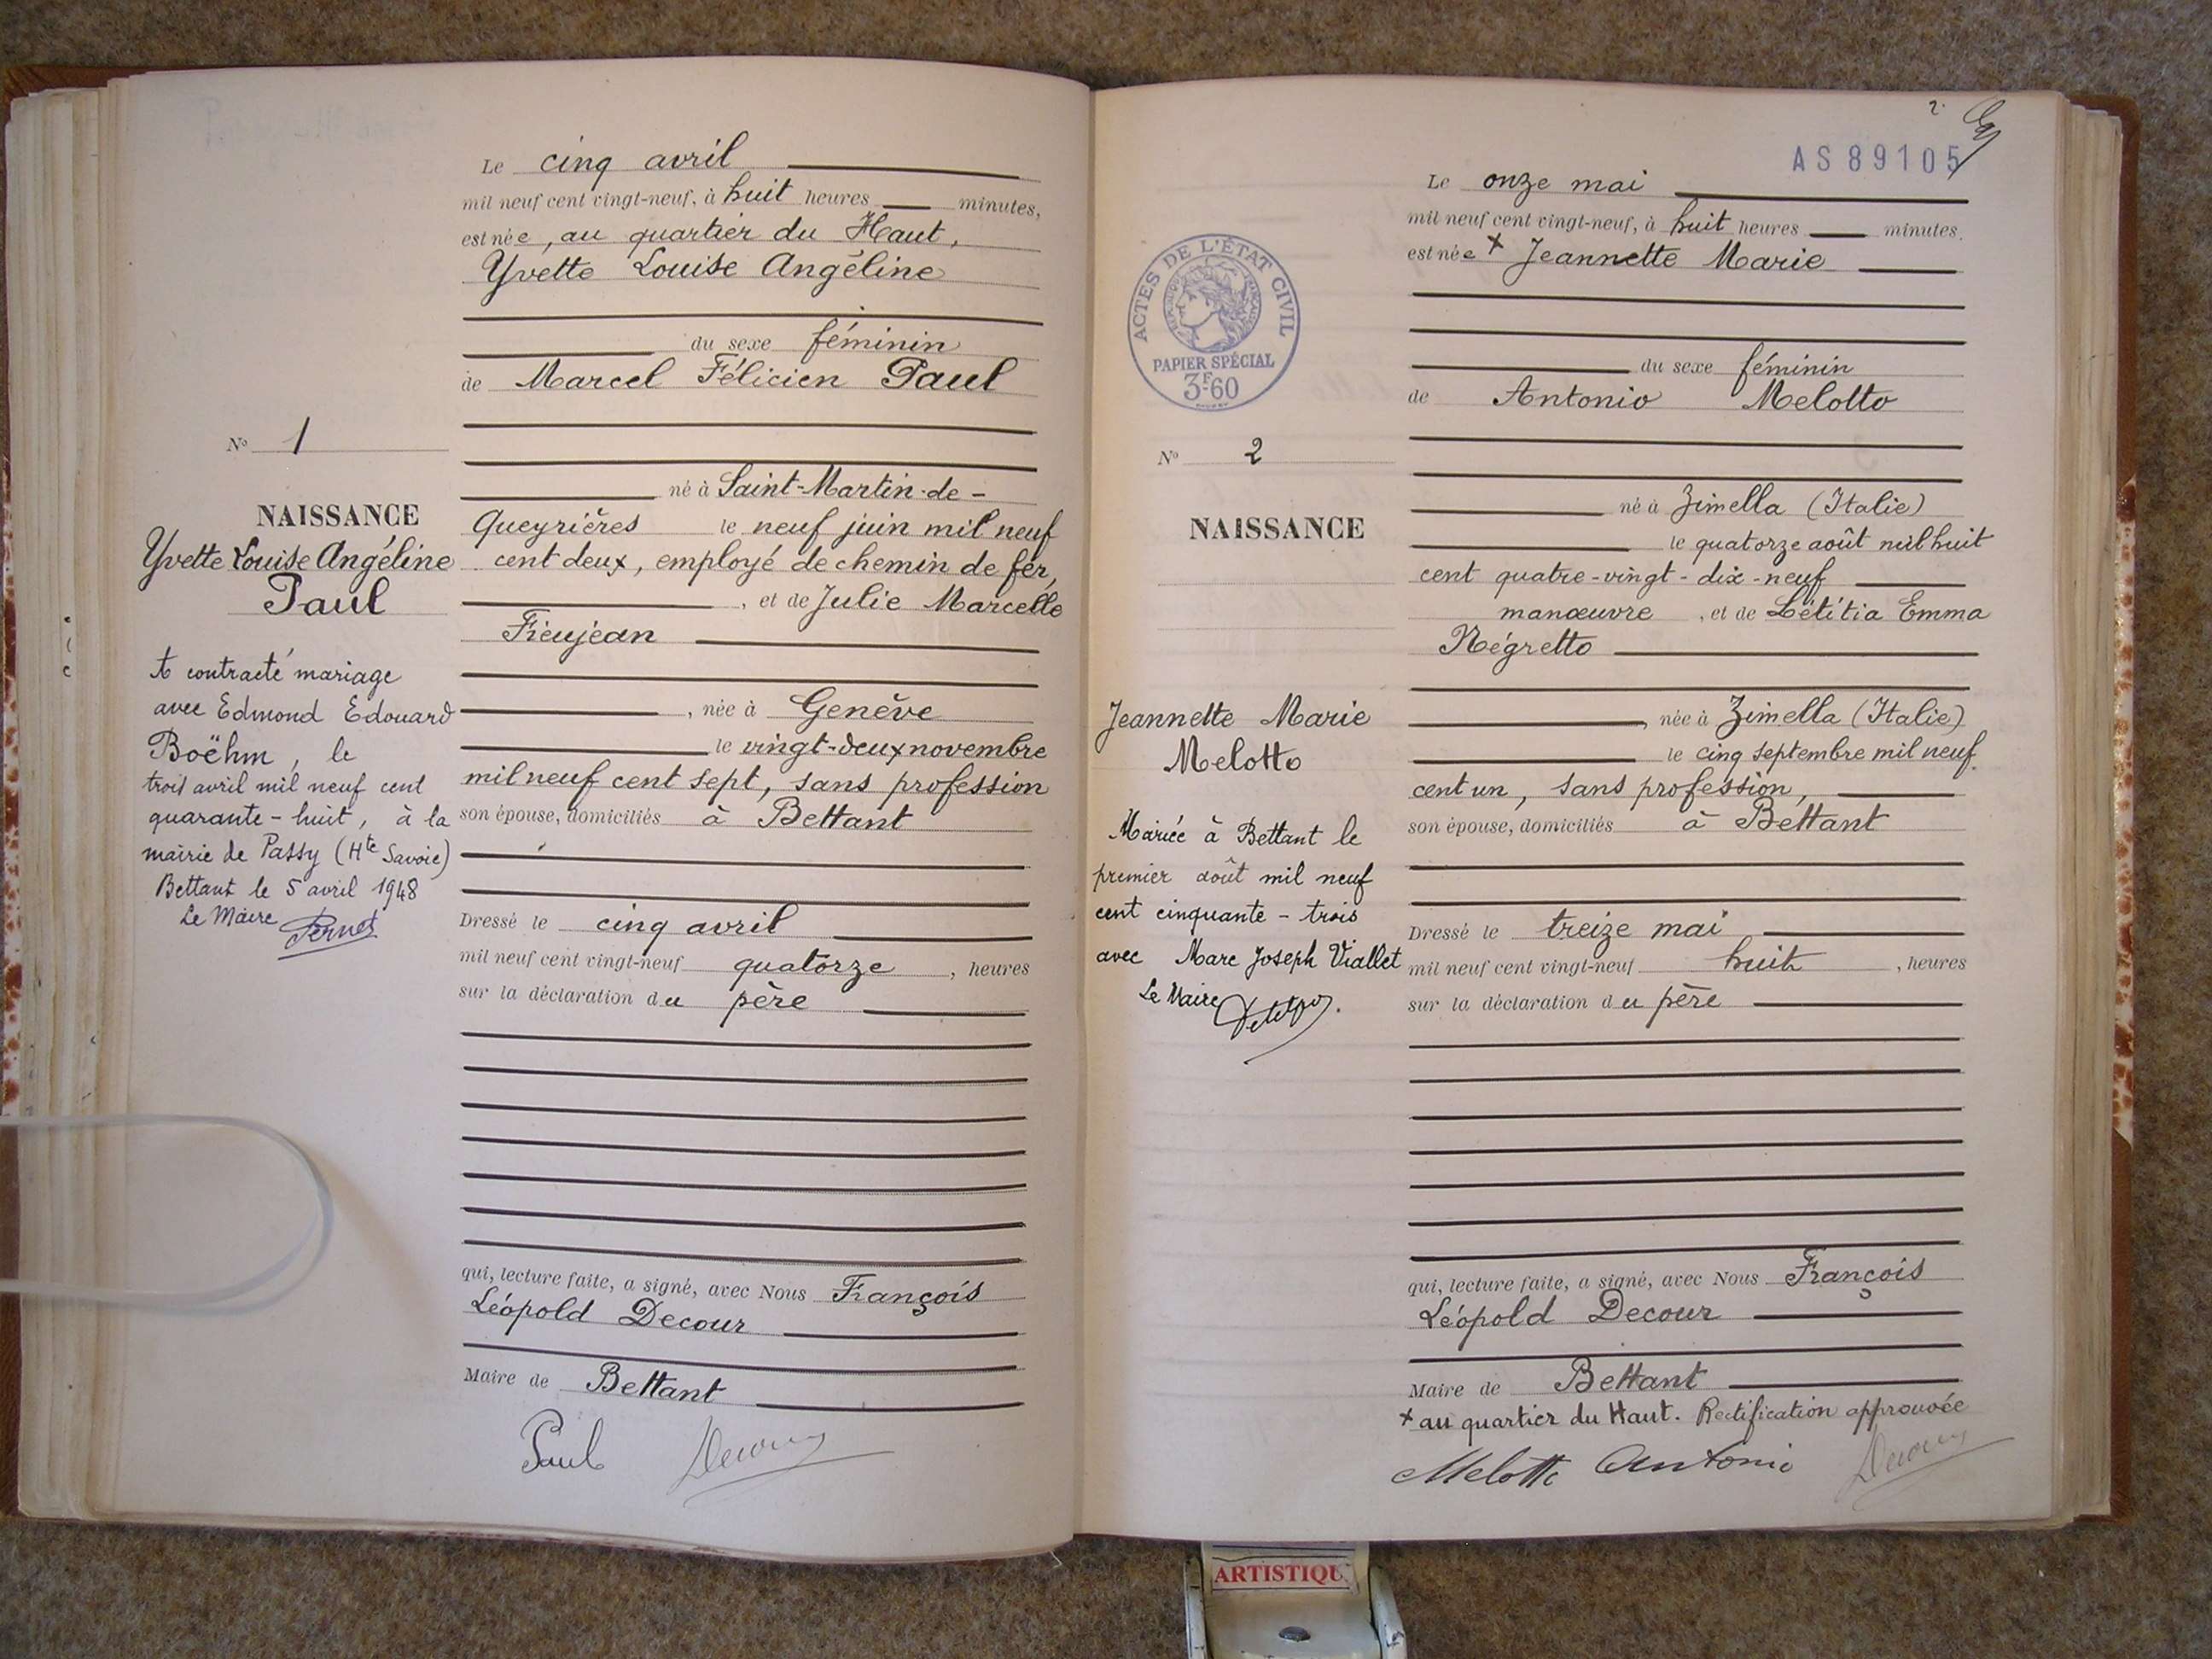 Le cinq avril
mil neuf cent vingt-neuf, à huit heures minutes,
est née, au quartier du Haut,
Yvette Louise Angéline
du sexe féminin
de Marcel Félicien Paul
né à Saint-Martin-de-
Queyrières le neuf juin mil neuf
cent deux, employé de chemin de fer,
, et de Julie Marcelle
Fieujean
, née à Genève
le vingt-deux novembre
mil neuf cent sept, sans profession
son épouse, domiciliés à Bettant
Dressé le cinq avril
mil neuf cent vingt-neuf quatorze , heures
sur la déclaration du père
qui, lecture faite, a signé, avec Nous François
Léopold Decour
Maire de Bettant
Paul Decour
No 1
NAISSANCE
Yvette Louise Angéline
Paul
A contracté mariage
avec Edmond Edouard
Boëhm, le
trois avril mil neuf cent
quarante-huit, à la
mairie de Passy (Hte Savoie)
Bettant le 5 avril 1948
Le Maire Pernet
2
AS 89105
Le onze mai
mil neuf cent vingt-neuf, à huit heures minutes.
est née x Jeannette Marie
du sexe féminin
de Antonio Melotto
né à Zimella (Italie)
le quatorze août mil huit
cent quatre-vingt-dix-neuf
manœuvre , et de Létitia Emma
Négretto
, née à Zimella (Italie)
le cinq septembre mil neuf
cent un, sans profession,
son épouse, domiciliés à Bettant
Dressé le treize mai
mil neuf cent vingt-neuf huit , heures
sur la déclaration du père
qui, lecture faite, a signé, avec Nous François
Léopold Decour
Maire de Bettant
x au quartier du Haut. Rectification approuvée
Melotto Antonio Decour
ACTES DE L'ÉTAT CIVIL
PAPIER SPÉCIAL
3F60
No 2
NAISSANCE
Jeannette Marie
Melotto
Mariée à Bettant le
premier août mil neuf
cent cinquante-trois
avec Marc Joseph Viallet
Le Maire
ARTISTIQU